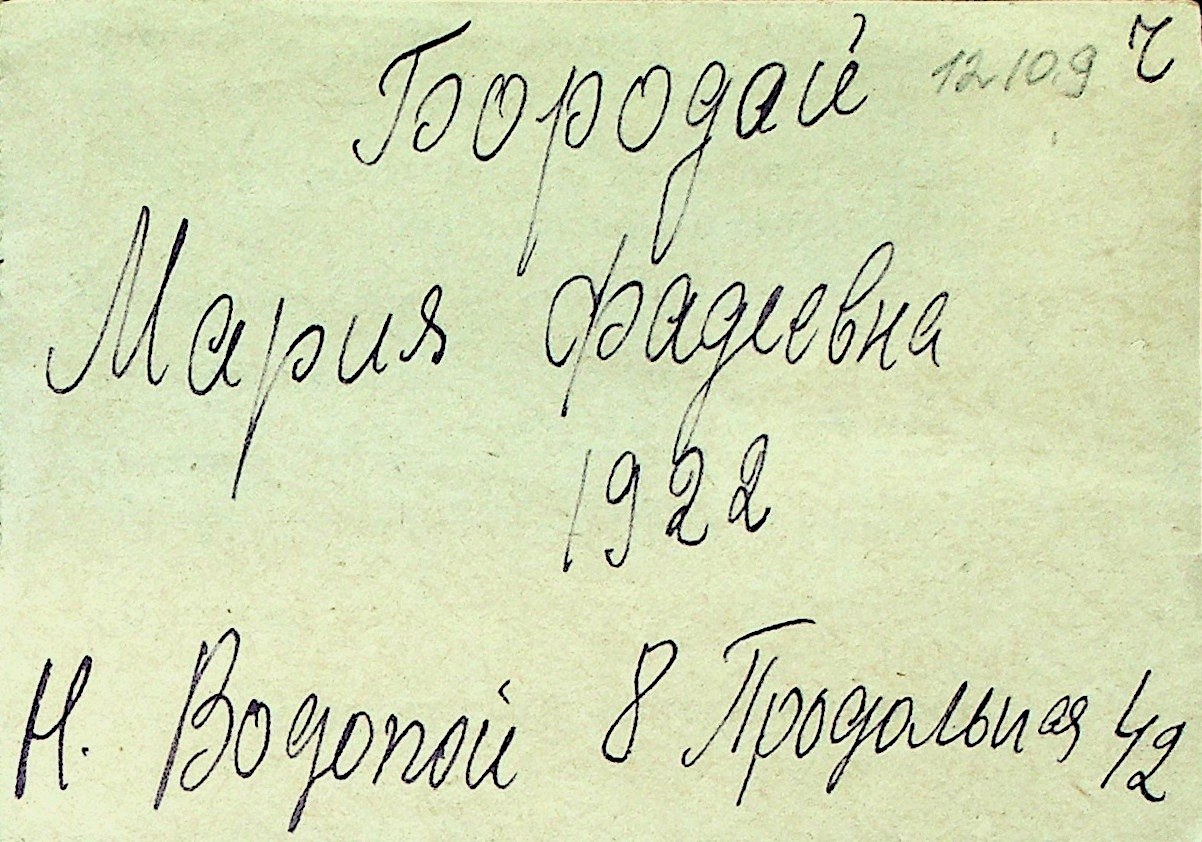 Бородай 12109 Ч
Мария Фадеевна
1922
Н. Водопой 8 Продольная 42